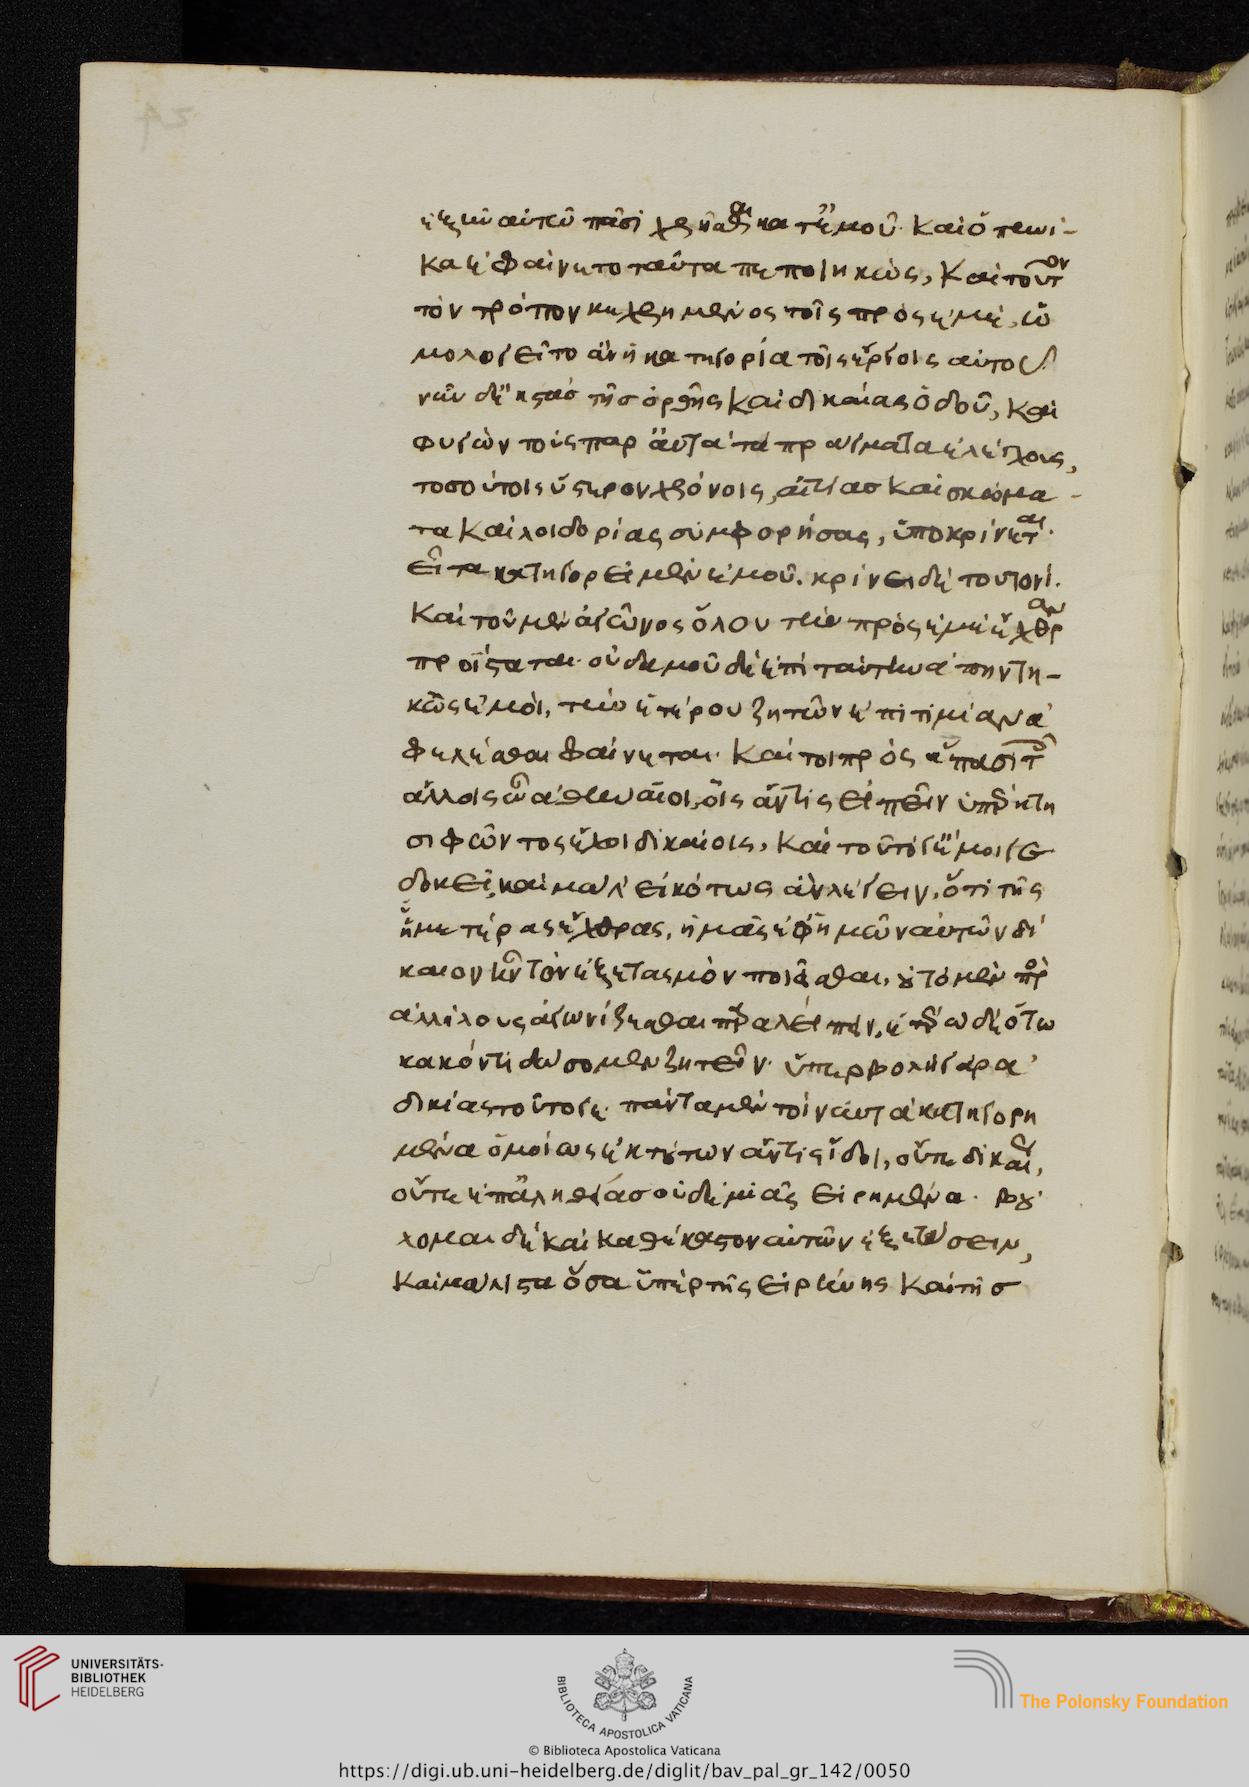 ἐξῆν αὐτῶ πᾶσι χρῆσθαι κατ' ἐμοῦ· καὶ ὁπηνί-
κα ἐφαίνετο ταῦτα πεποιηκὼς, καὶ τοῦτον
τὸν τρόπον κεχρημένος τοῖς πρὸς ἐμέ, ὡ
μολογεῖτο ἂν ἡ κατηγορία τοῖς ἔργοις αὐτοῦ·
νῦν δ' ἐκστὰσ τῆσ ὀρθῆς καὶ δικαίας ὁδοῦ, καὶ
φυγὼν τοὺς παρ' αὐτὰ τὰ πράγματα ἐλέγχους,
τοσούτοις ὕστερον χρόνοις, αἰτίασ καὶ σκώμμα-
τα καὶ λοιδορίας συμφορήσας, ὑποκρίνεται·
εἶτα κατηγορεῖ μὲν ἐμοῦ. κρίνει δὲ τουτονί.
καὶ τοῦ μὲν ἀγῶνος ὅλου τὴν πρὸς ἐμὲ ἔχθραν
προΐσταται· οὐδαμοῦ δὲ ἐπὶ ταύτην ἀπηντη-
κὼς ἐμοὶ, τὴν ἑτέρου ζητῶν ἐπιτιμίαν ἀ
φελέσθαι φαίνεται· καίτοι πρὸς ἅπασι τοῖς
ἄλλοις ὦ ἀθηναῖοι, οἷς ἄν τις εἰπεῖν ὑπὲρ κτη
σιφῶντος ἔχοι δικαίοις, καὶ τοῦτό γ' ἔμοιγε
δοκεῖ, καὶ μάλ' εἰκότως ἂν λέγειν, ὅτι τῆς
ἡμετέρας ἔχθρας, ἡμᾶς ἐφ' ἡμῶν αὐτῶν δί
καιον ἦν τὸν ἐξετασμὸν ποιεῖσθαι, οὐ τὸ μὲν πρὸς
ἀλλήλους ἀγωνίζεσθαι παραλείπειν, ἑτέρω δὲ ὅτω
κακόν τι δώσομεν ζητεῖν· ὑπερβολὴ γὰρ ἀ
δικίας τοῦτό γε· πάντα μὲν τοίνυν τὰ κατηγορη
μένα ὁμοίως ἐκ τούτων ἄν τις ἴδοι, οὔτε δικαίως,
οὔτε ἐπ' ἀληθείασ οὐδεμιᾶς εἰρημένα· βού
λομαι δὲ καὶ καθ' ἕκαστον αὐτῶν ἐξετάσειν,
καὶ μάλιστα ὅσα ὑπὲρ τῆς εἰρήνης καὶ τῆσ
UNIVERSITÄTS-
BIBLIOTHEK
HEIDELBERG
BIBLIOTECA APOSTOLICA VATICANA
The Polonsky Foundation
© Biblioteca Apostolica Vaticana
https://digi.ub.uni-heidelberg.de/diglit/bav_pal_gr_142/0050